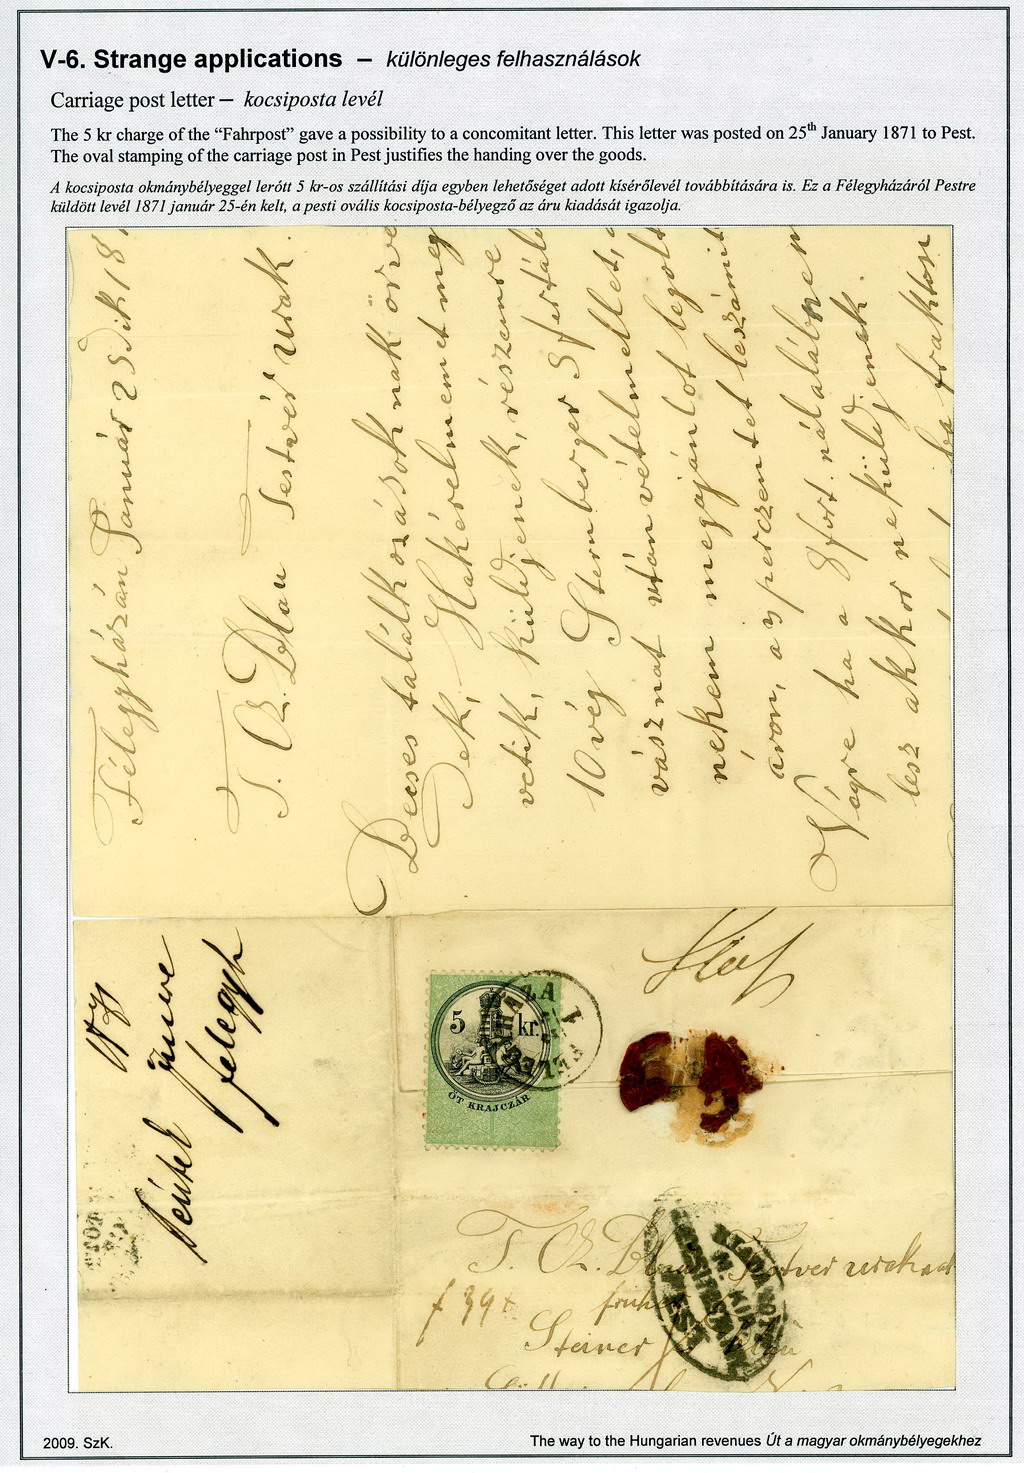 V-6. Strange applications – különleges felhasználások
Carriage post letter – kocsiposta levél
The 5 kr charge of the “Fahrpost” gave a possibility to a concomitant letter. This letter was posted on 25th January 1871 to Pest.
The oval stamping of the carriage post in Pest justifies the handing over the goods.
A kocsiposta okmánybélyeggel lerótt 5 kr-os szállítási díja egyben lehetőséget adott kísérőlevél továbbítására is. Ez a Félegyházáról Pestre
küldött levél 1871 január 25-én kelt, a pesti ovális kocsiposta-bélyegző az áru kiadását igazolja.
Félegyházán Január 25dik 18
T. Z. Blau Testvér Urak.
Becses találkozásoknak örve
dek, Ha kérelmemet meg
vetik, küldjenek, részemre
10 vég Sternberger 5 fertály
vásznat után vétel mellet, a
nekem megajánlot legolt
áron, a perczentet leszámit
Végre ha a 8 fort. nál alább nem
lesz akkor ne küldjenek.
fél egyh
5 kr.
ÖT KRAJCZÁR
T. Z. Blau Testver uraknak
früher
Steiner & Blau
2009. SzK.
The way to the Hungarian revenues Út a magyar okmánybélyegekhez